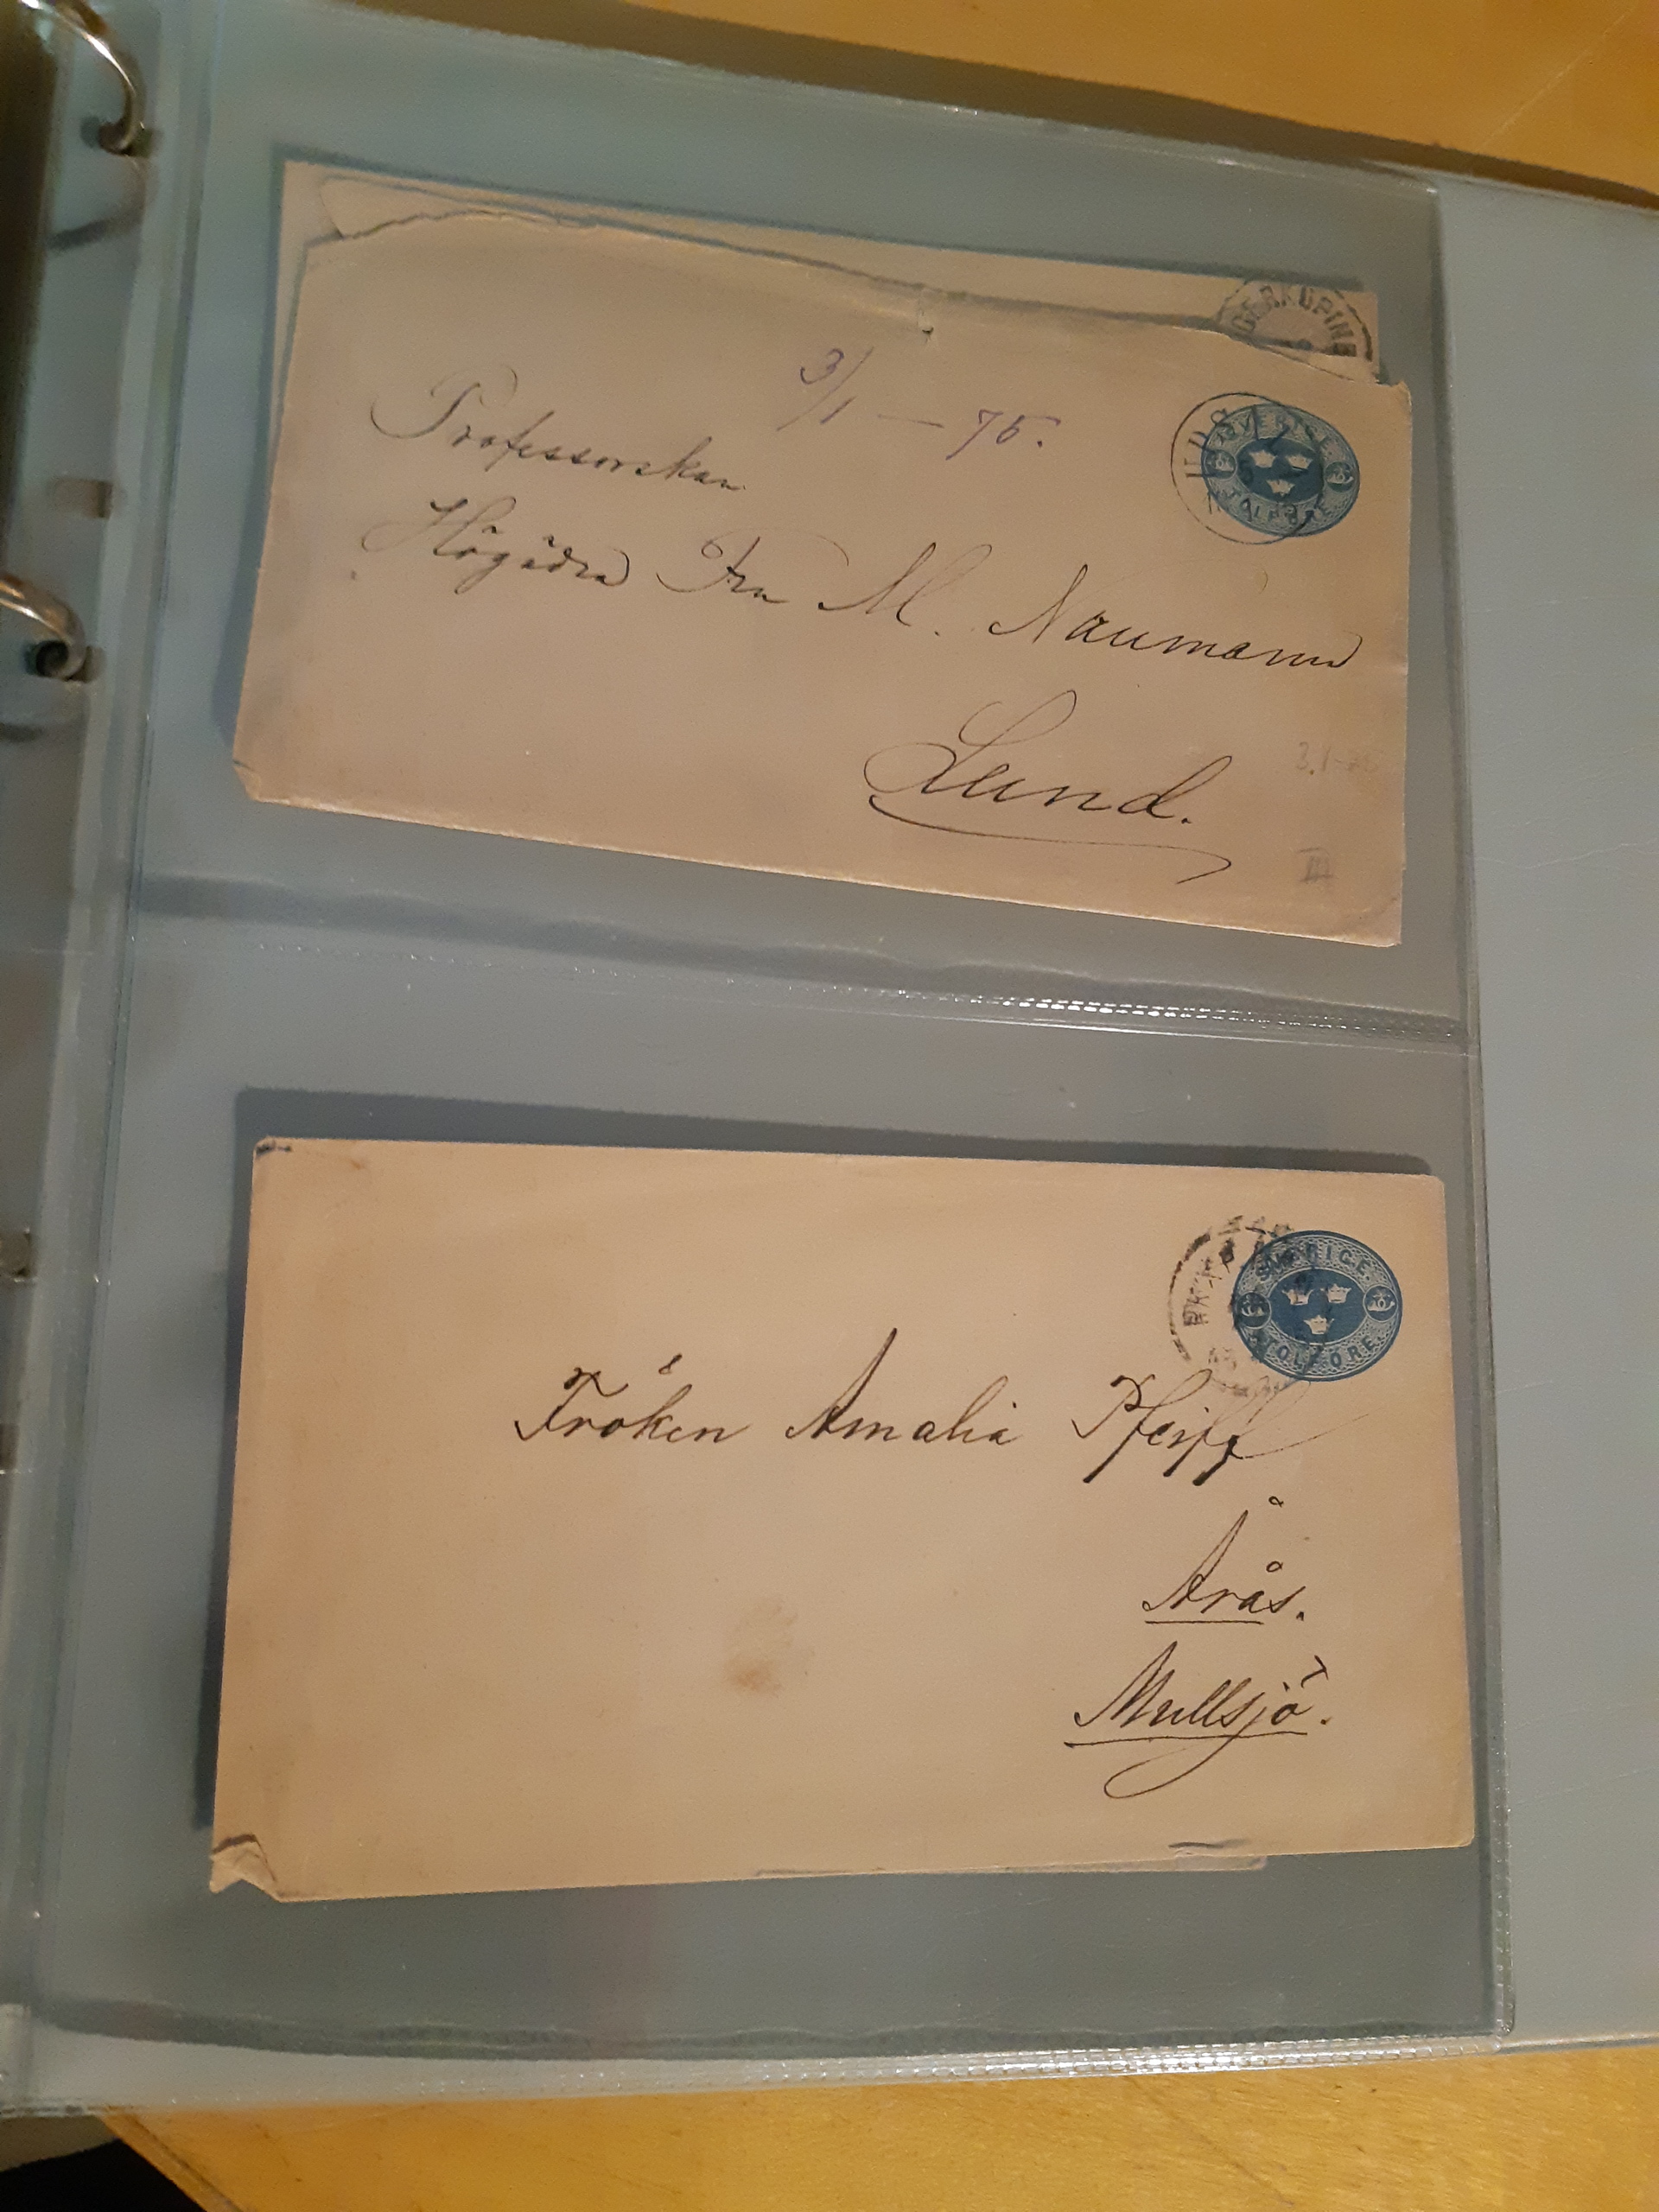 DERKÖPING
3/1 — 75.
SVERIGE
TOLF ÖRE
Professorskan
Högädra Fru M. Naumann
Lund.
III
SVERIGE
TOLF ÖRE
Fröken Amalia Pfeiff
Årås.
Mullsjö.